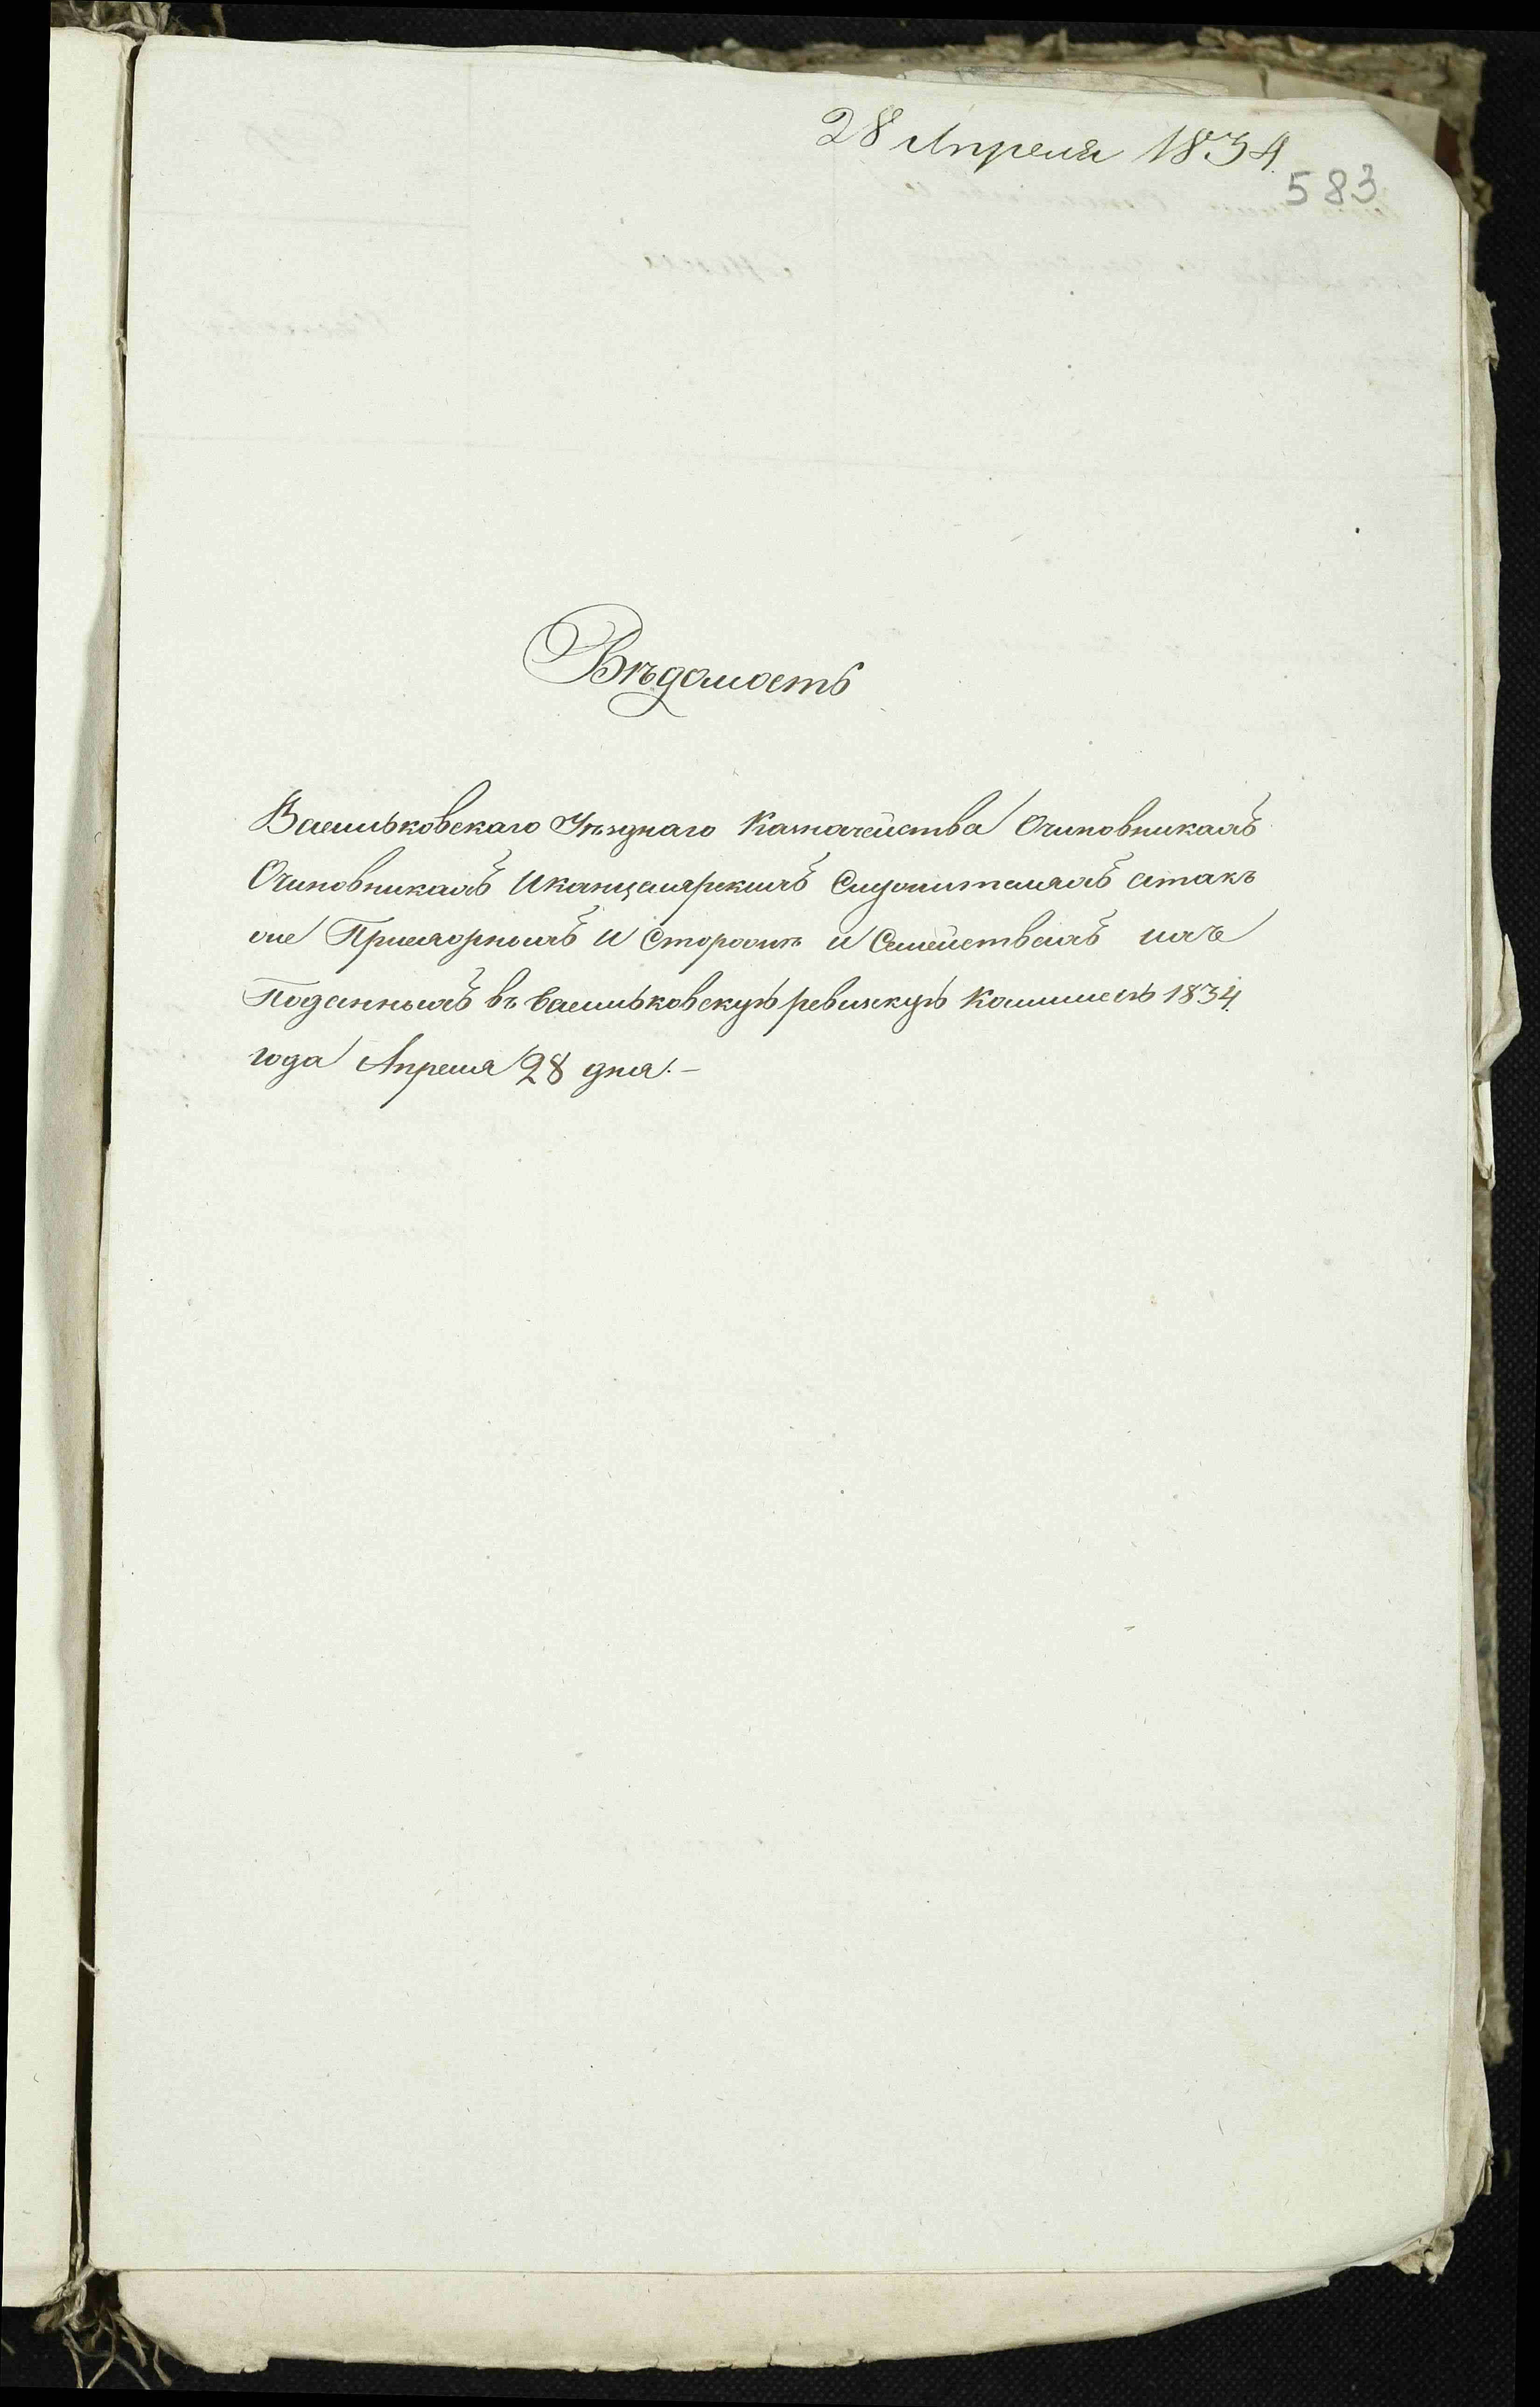 28 Апреля 1834.
583
Вѣдомость
Васильковскаго Уѣзднаго Казначейства Очиновникахъ
Очиновникахъ Иканцелярскихъ Служителяхъ атакъ
же Присяжныхъ И Сторожѣ и Семействахъ ихъ
Поданныхъ въ Васильковскую ревизкую Коммисію 1834.
года Апреля 28 дня.–